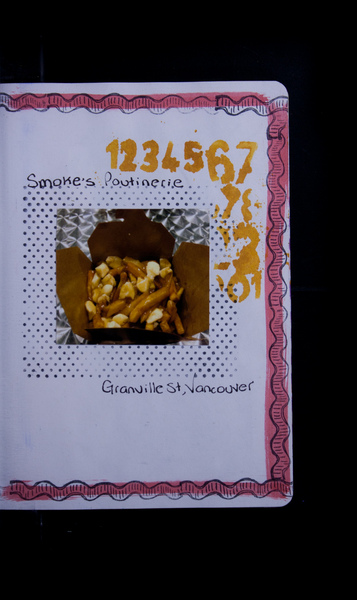 1234567
Smoke's Poutinerie
78
Granville St, Vancouver